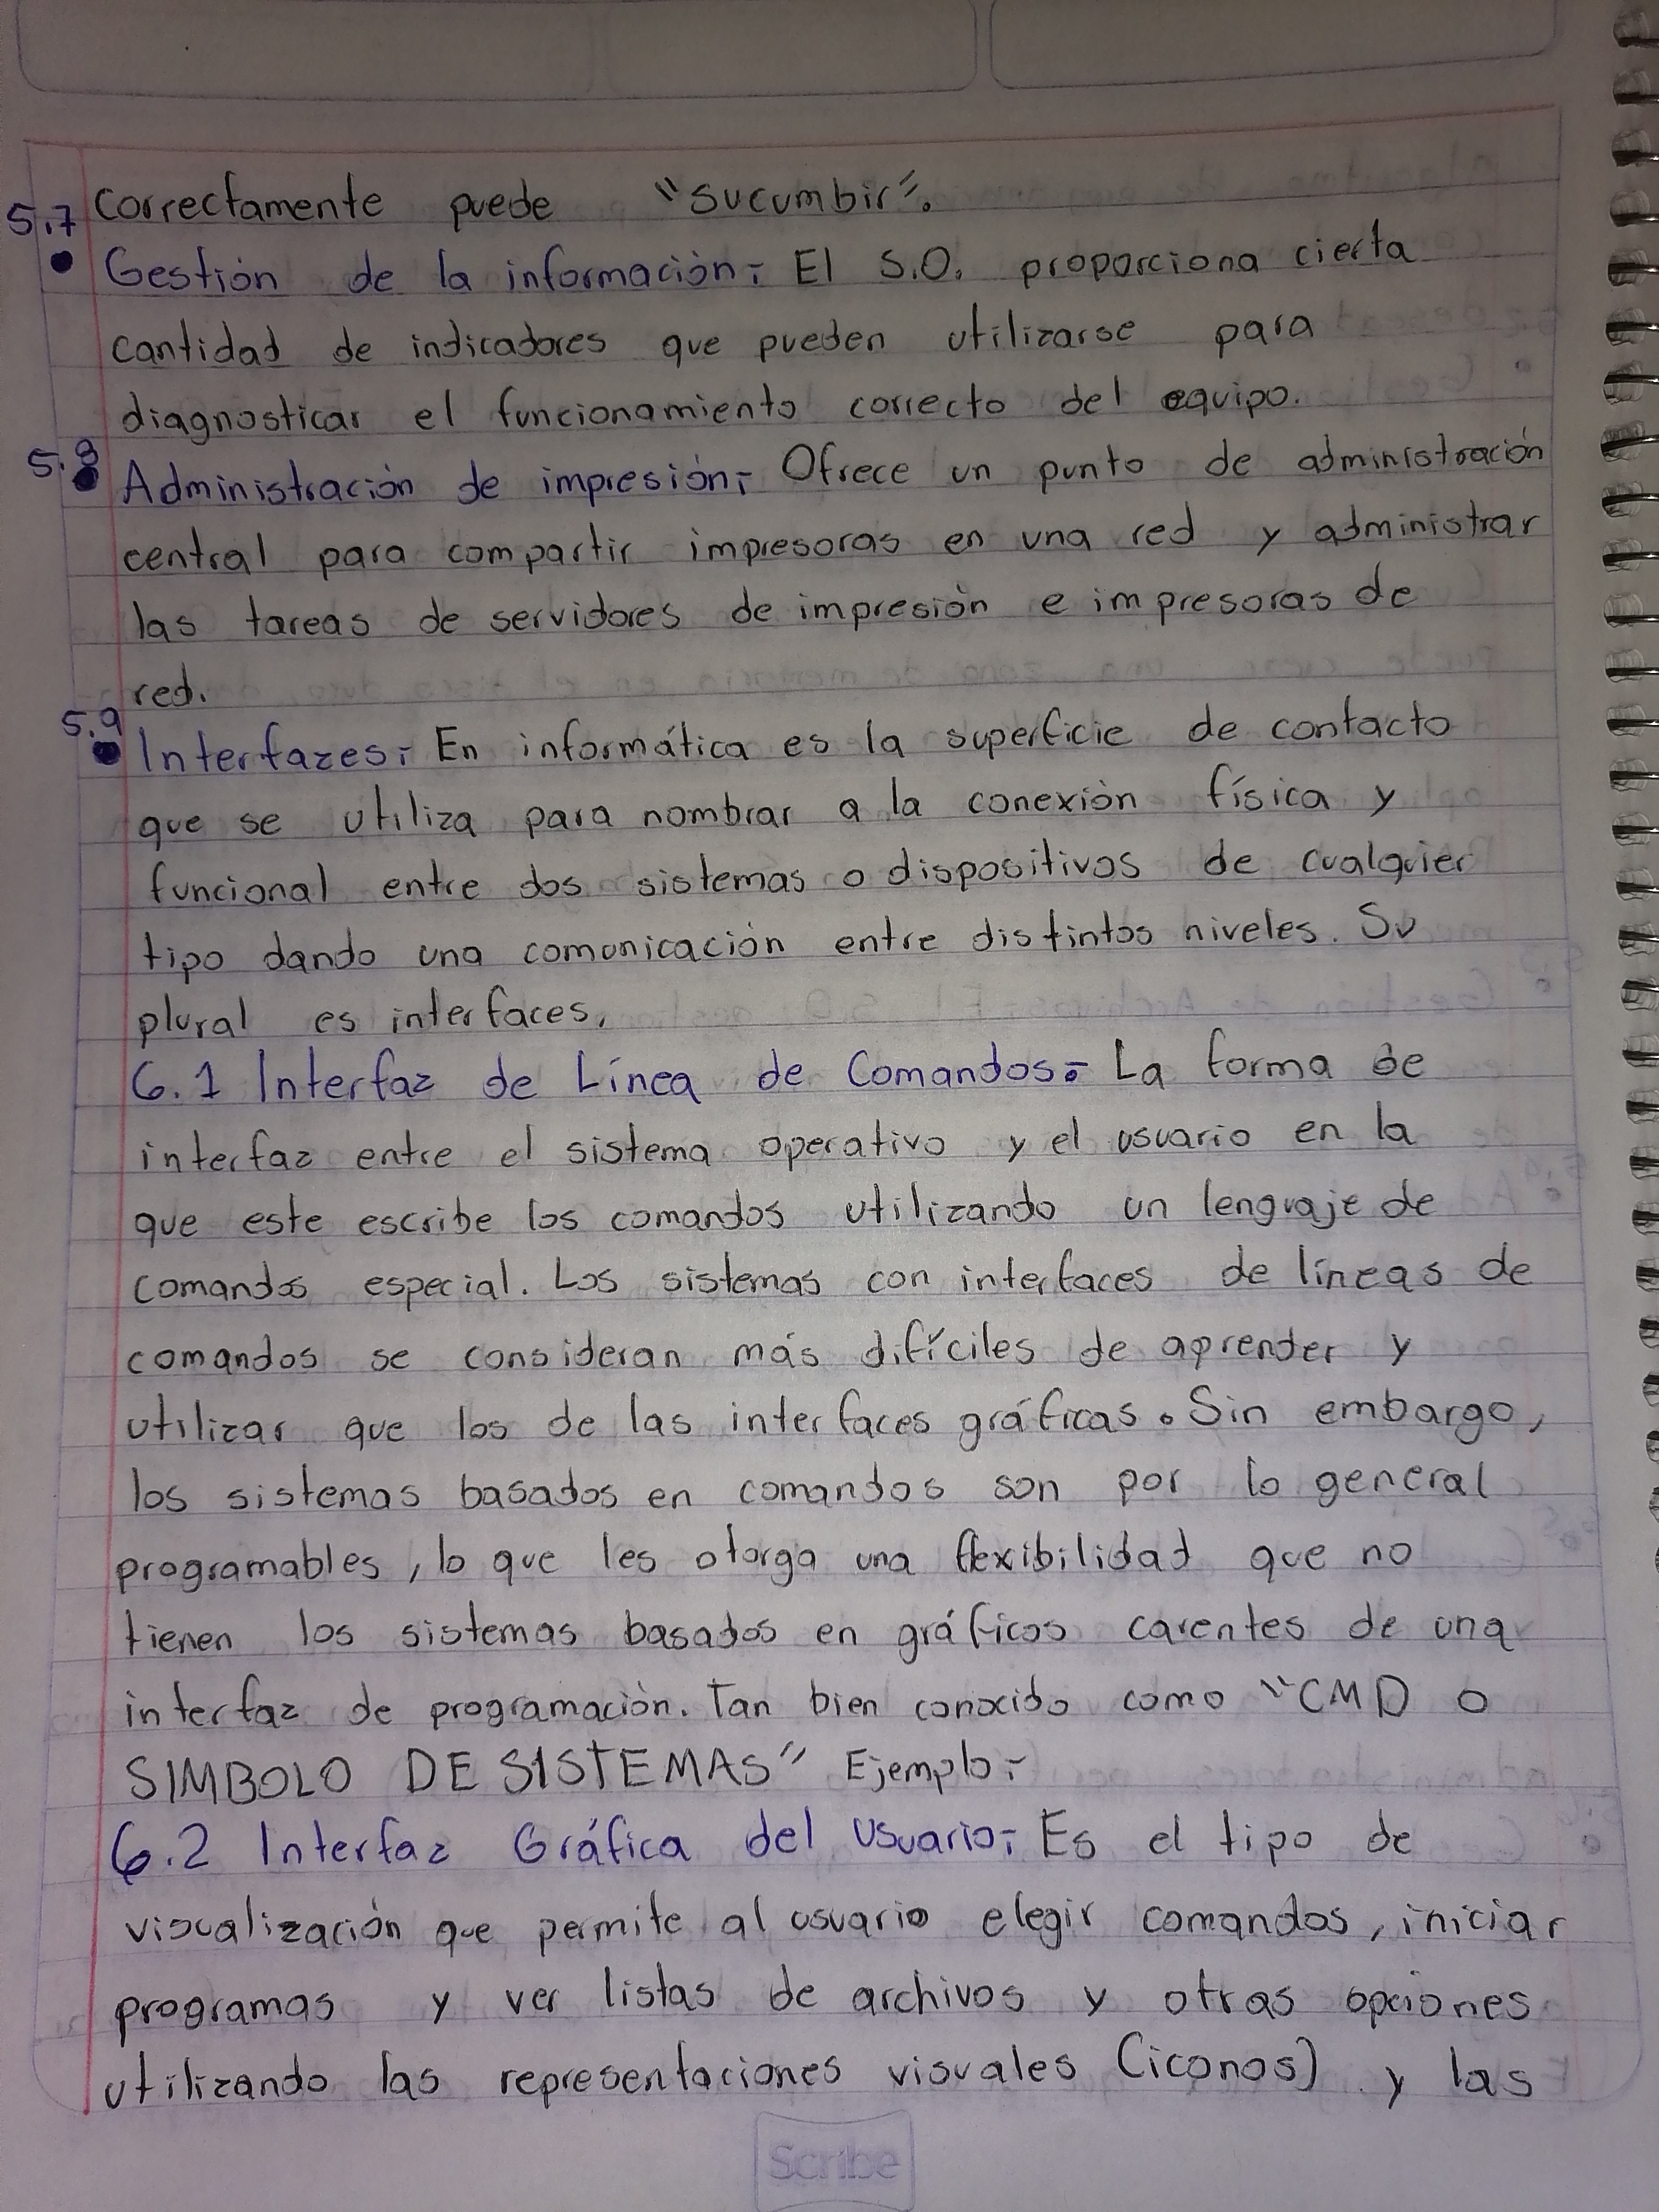 Correctamente puede "sucumbir".
5.7
• Gestión de la información: El S.O. proporciona cierta
cantidad de indicadores que pueden utilizarse para
diagnosticar el funcionamiento correcto del equipo.
5.8
• Administración de impresión: Ofrece un punto de administración
central para compartir impresoras en una red y administrar
las tareas de servidores de impresión e impresoras de
red.
5.9
• Interfazes: En informática es la superficie de contacto
que se utiliza para nombrar a la conexión física y
funcional entre dos sistemas o dispositivos de cualquier
tipo dando una comunicación entre distintos niveles. Su
plural es interfaces.
6.1 Interfaz de Línea de Comandos: La forma de
interfaz entre el sistema operativo y el usuario en la
que este escribe los comandos utilizando un lenguaje de
comandos especial. Los sistemas con interfaces de líneas de
comandos se consideran más difíciles de aprender y
utilizar que los de las interfaces gráficas. Sin embargo,
los sistemas basados en comandos son por lo general
programables, lo que les otorga una flexibilidad que no
tienen los sistemas basados en gráficos carentes de una
interfaz de programación. Tan bien conocido como "CMD O
SIMBOLO DE SISTEMAS" Ejemplo:
6.2 Interfaz Gráfica del Usuario: Es el tipo de
visualización que permite al usuario elegir comandos, iniciar
programas y ver listas de archivos y otras opciones
utilizando las representaciones visuales (iconos) y las
Scribe